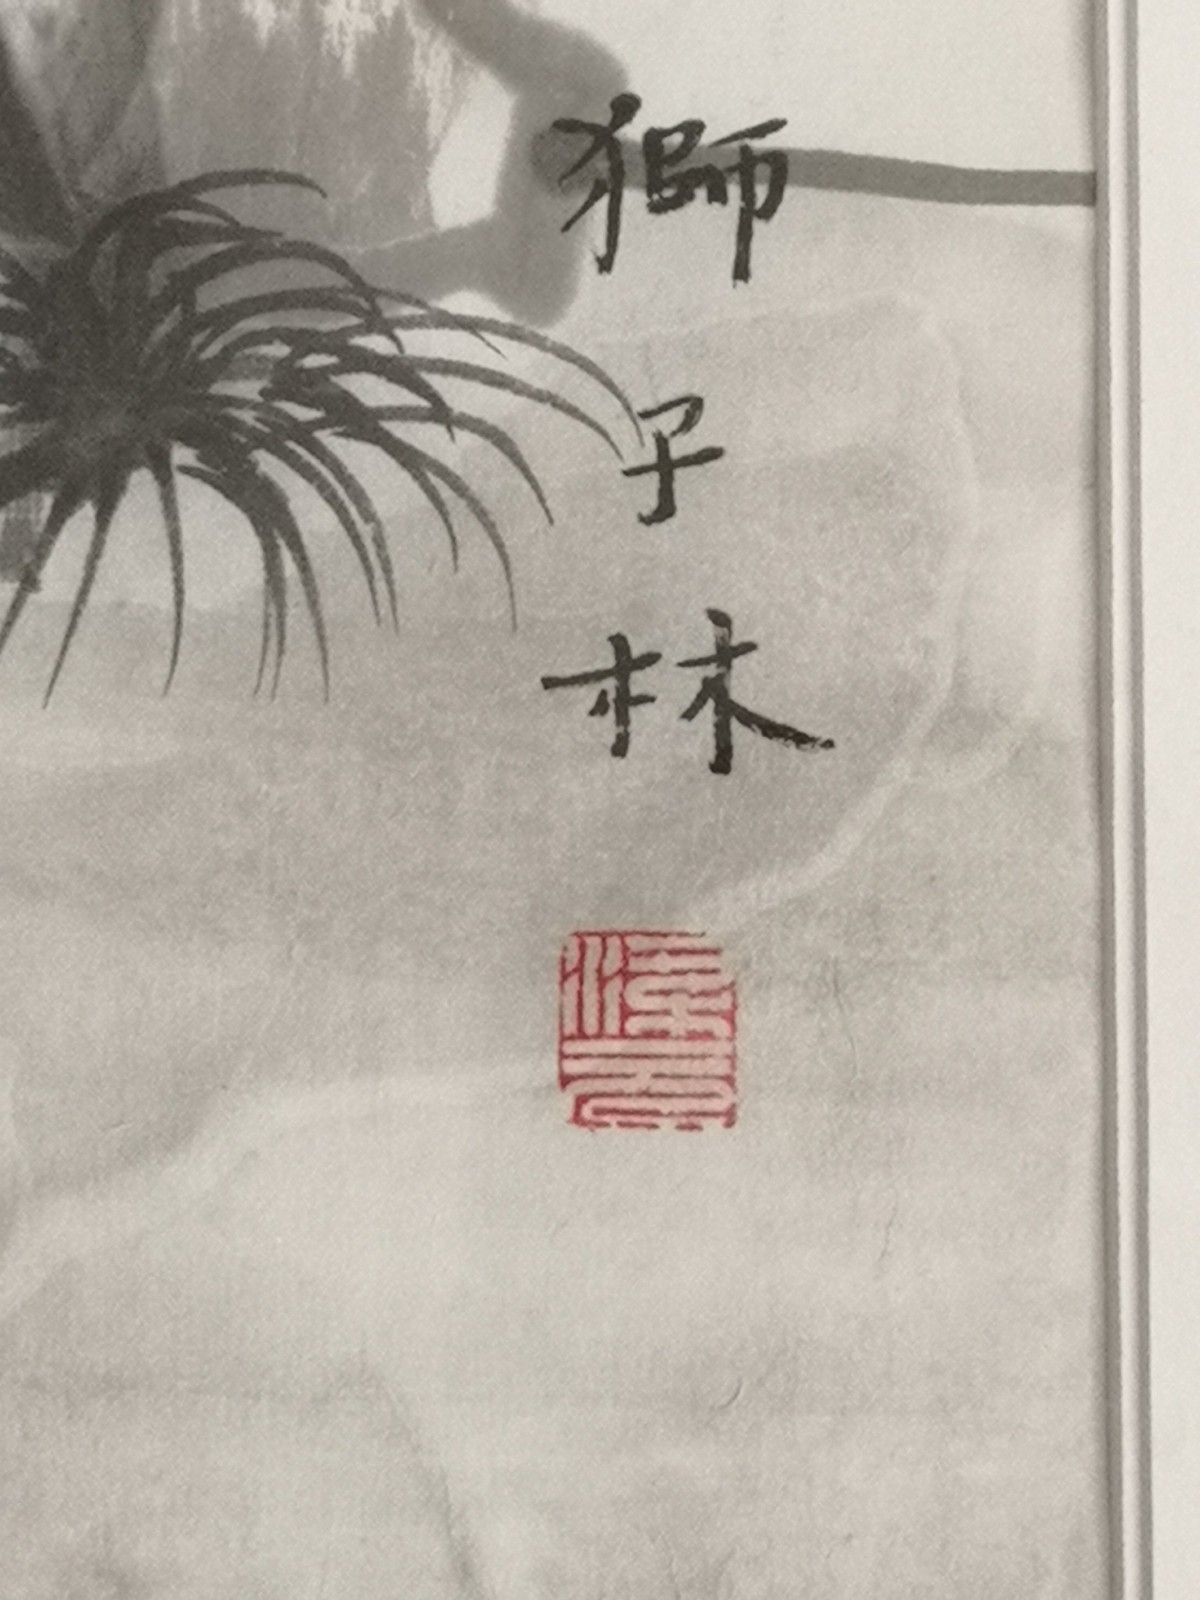 獅子林